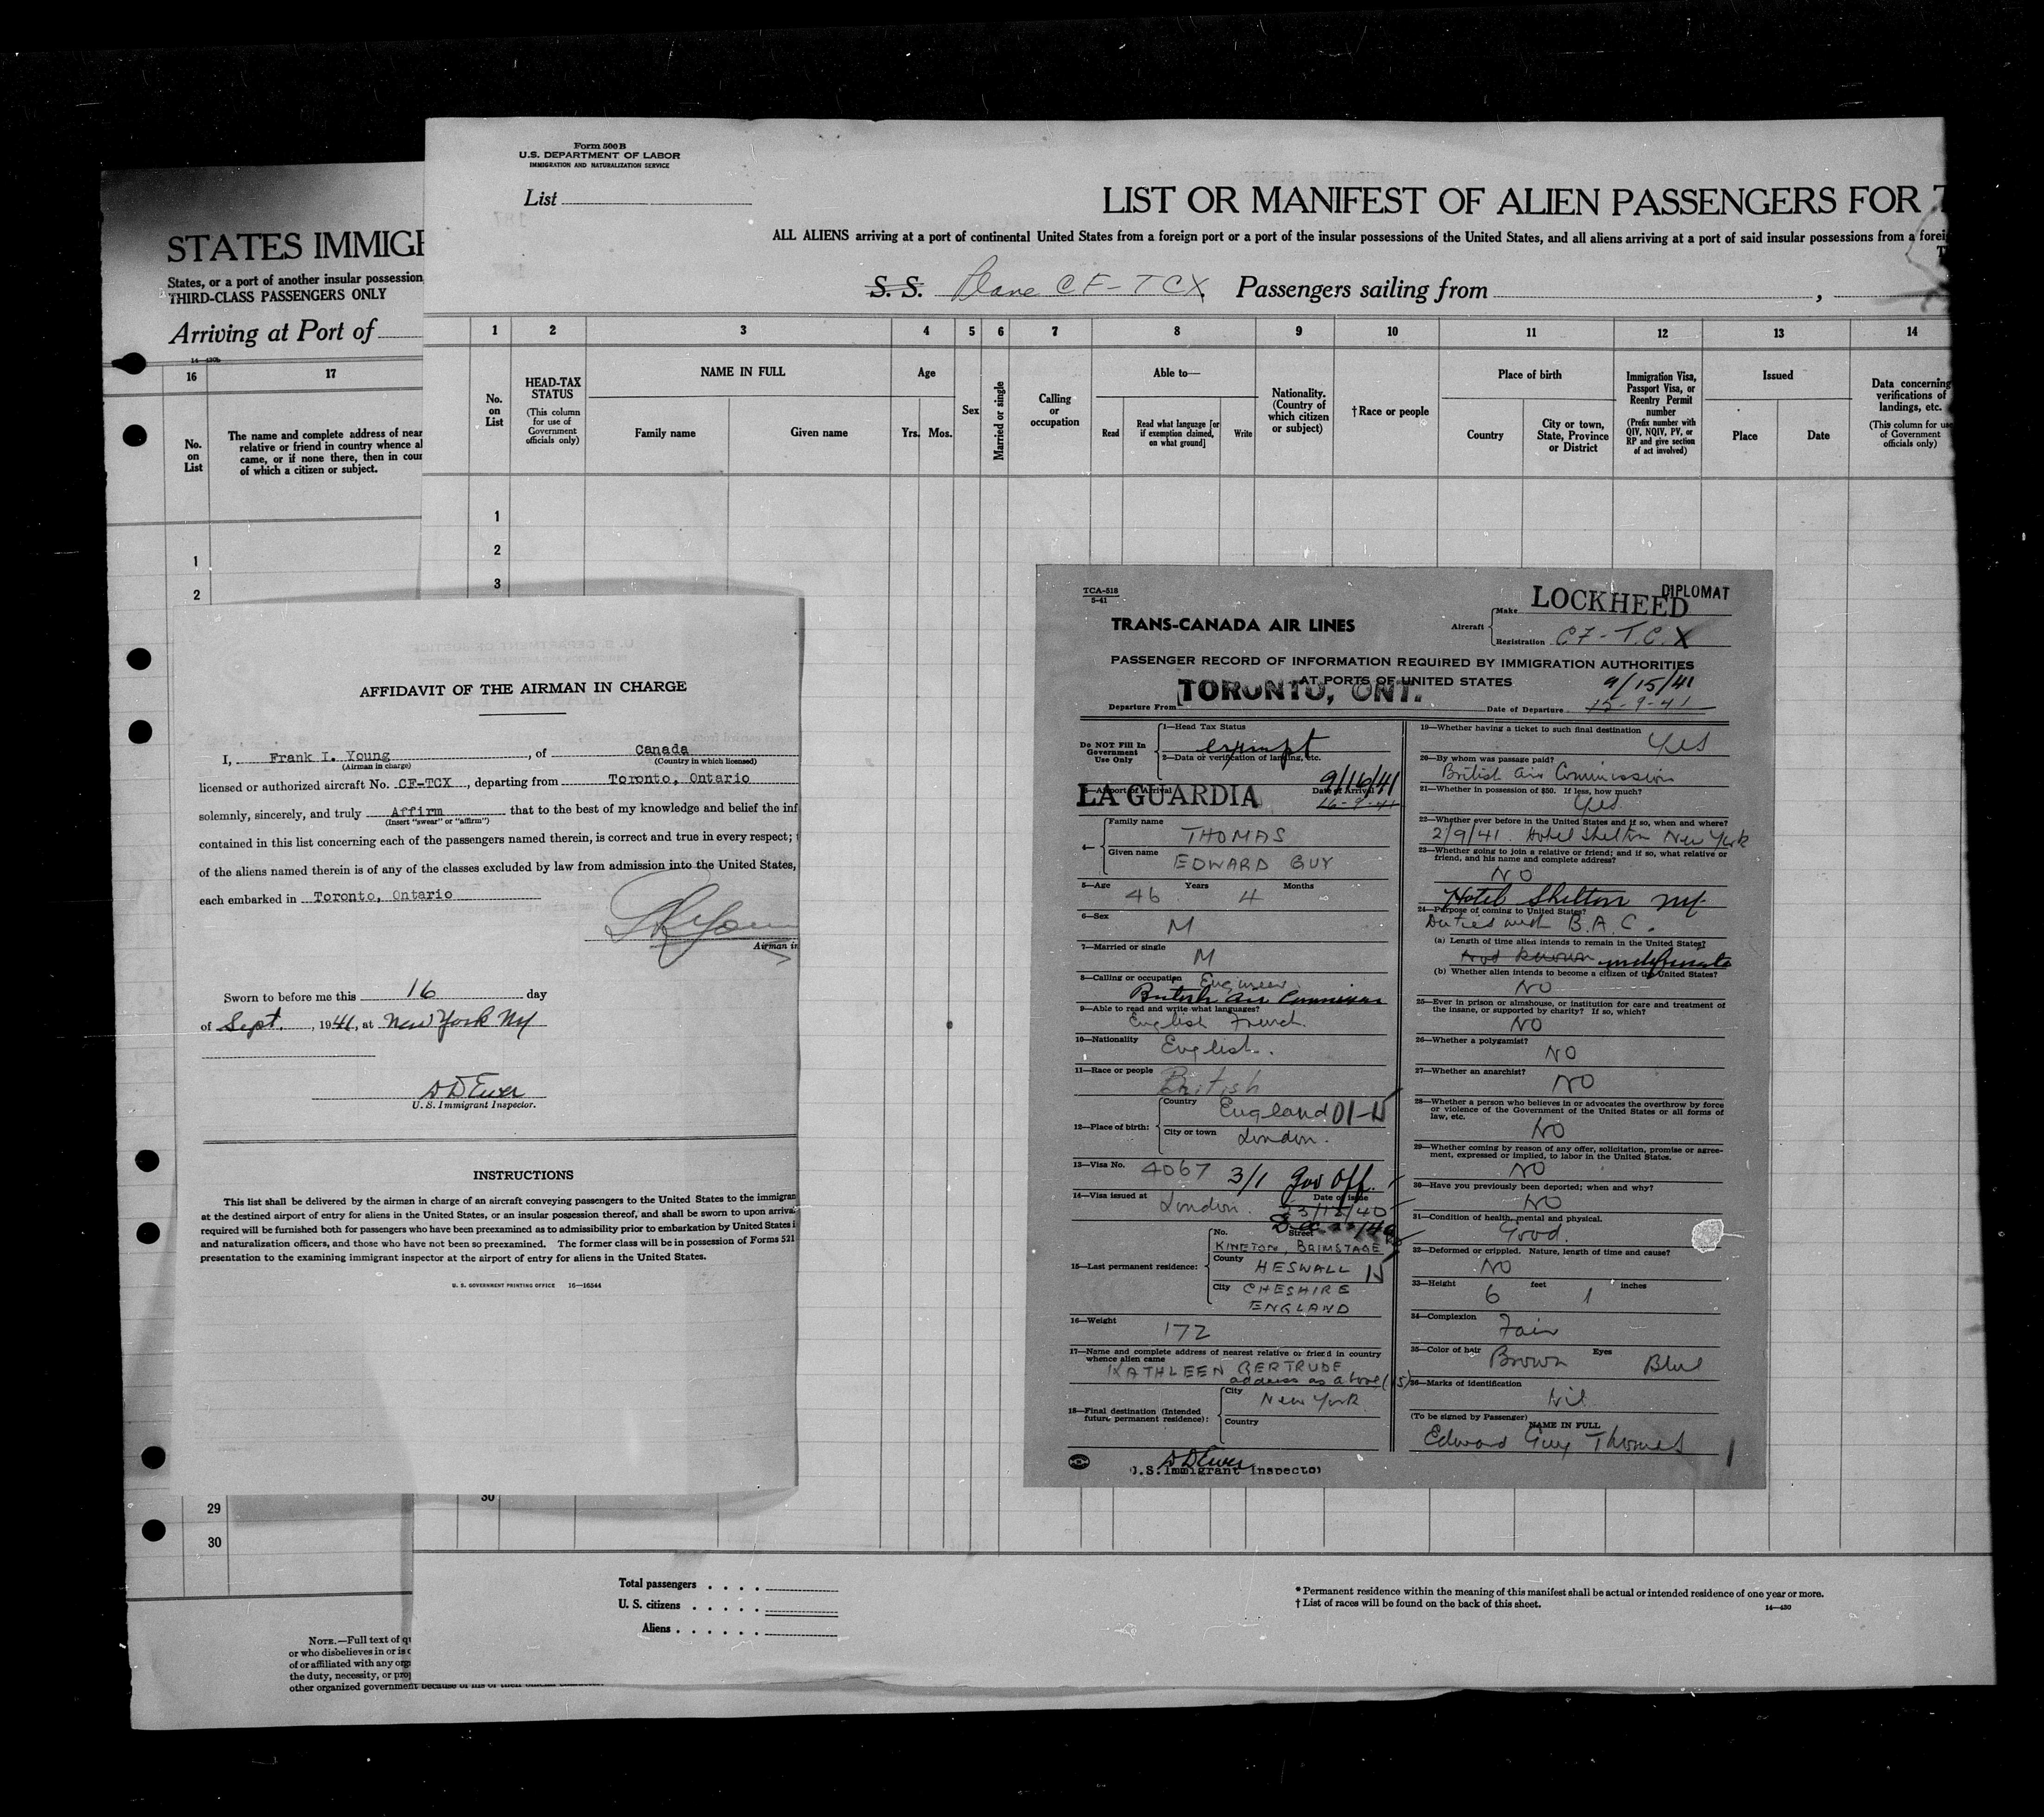 STATES IMMIG
States, or a port of another insular possession
THIRD-CLASS PASSENGERS ONLY
Arriving at Port of
14—430b
16 17
No. on List
The name and complete address of near
relative or friend in country whence al
came, or if none there, then in cour
of which a citizen or subject.
1
2
29
30
NOTE.—Full text of qu
or who disbelieves in or is o
of or affiliated with any orga
the duty, necessity, or prop
other organized government because of his or their official
Form 500 B
U.S. DEPARTMENT OF LABOR
IMMIGRATION AND NATURALIZATION SERVICE
List
LIST OR MANIFEST OF ALIEN PASSENGERS FOR T
ALL ALIENS arriving at a port of continental United States from a foreign port or a port of the insular possessions of the United States, and all aliens arriving at a port of said insular possessions from a forei
S. S. Plane CF-TCX Passengers sailing from ,
1 2 3 4 5 6 7 8 9 10 11 12 13 14
No. on List
HEAD-TAX STATUS
(This column for use of Government officials only)
NAME IN FULL
Family name Given name
Age
Yrs. Mos.
Sex
Married or single
Calling or occupation
Able to—
Read
Read what language [or if exemption claimed, on what ground]
Write
Nationality. (Country of which citizen or subject)
†Race or people
Place of birth
Country
City or town, State, Province or District
Immigration Visa, Passport Visa, or Reentry Permit number
(Prefix number with QIV, NQIV, PV, or RP and give section of act involved)
Issued
Place Date
Data concerning verifications of landings, etc.
(This column for use of Government officials only)
1
2
3
30
Total passengers . . . .
U. S. citizens . . . . .
Aliens . . . . . .
* Permanent residence within the meaning of this manifest shall be actual or intended residence of one year or more.
† List of races will be found on the back of this sheet.
14—430
AFFIDAVIT OF THE AIRMAN IN CHARGE
I, Frank I. Young, of Canada
(Airman in charge) (Country in which licensed)
licensed or authorized aircraft No. CF-TCX, departing from Toronto, Ontario
solemnly, sincerely, and truly Affirm that to the best of my knowledge and belief the inf
(Insert "swear" or "affirm")
contained in this list concerning each of the passengers named therein, is correct and true in every respect;
of the aliens named therein is of any of the classes excluded by law from admission into the United States,
each embarked in Toronto, Ontario
Airman in
Sworn to before me this 16 day
of Sept., 1941, at New York NY
D D Ewer
U. S. Immigrant Inspector.
INSTRUCTIONS
This list shall be delivered by the airman in charge of an aircraft conveying passengers to the United States to the immigran
at the destined airport of entry for aliens in the United States, or an insular possession thereof, and shall be sworn to upon arrival
required will be furnished both for passengers who have been preexamined as to admissibility prior to embarkation by United States i
and naturalization officers, and those who have not been so preexamined. The former class will be in possession of Forms 521
presentation to the examining immigrant inspector at the airport of entry for aliens in the United States.
U. S. GOVERNMENT PRINTING OFFICE 16—16544
TCA-518
5-41
TRANS-CANADA AIR LINES
Aircraft
Make LOCKHEED
DIPLOMAT
Registration CF-T.C.X
PASSENGER RECORD OF INFORMATION REQUIRED BY IMMIGRATION AUTHORITIES
AT PORTS OF UNITED STATES
9/15/41
Departure From TORONTO, ONT. Date of Departure 15-9-41
Do NOT Fill In Government Use Only
1—Head Tax Status
exempt
2—Data or verification of landing, etc.
3—Airport of Arrival LA GUARDIA
Date of Arrival 9/16/41
16-9-41
4— Family name THOMAS
Given name EDWARD GUY
5—Age 46 Years 4 Months
6—Sex M
7—Married or single M
8—Calling or occupation Engineer
British Air Commission
9—Able to read and write what languages?
English French
10—Nationality English.
11—Race or people British
12—Place of birth: Country England 01-15
City or town London.
13—Visa No. 4067 3/1 Gov Off.
14—Visa issued at London. Date of issue 23/12/40
Dec 23/40
15—Last permanent residence:
No. Street
KINETON, BRIMSTAGE
County HESWALL 15
City CHESHIRE
ENGLAND
16—Weight 172
17—Name and complete address of nearest relative or friend in country
whence alien came
KATHLEEN GERTRUDE
address as above (15)
18—Final destination (Intended future permanent residence):
City New York
Country
D D Ewer
U.S. Immigrant Inspector
19—Whether having a ticket to such final destination
Yes
20—By whom was passage paid?
British Air Commission
21—Whether in possession of $50. If less, how much?
Yes.
22—Whether ever before in the United States and if so, when and where?
2/9/41. Hotel Shelton New York
23—Whether going to join a relative or friend; and if so, what relative or
friend, and his name and complete address?
NO
Hotel Shelton NY.
24—Purpose of coming to United States?
Duties with B.A.C.
(a) Length of time alien intends to remain in the United States?
Not known indefinite
(b) Whether alien intends to become a citizen of the United States?
NO
25—Ever in prison or almshouse, or institution for care and treatment of
the insane, or supported by charity? If so, which?
NO
26—Whether a polygamist?
NO
27—Whether an anarchist?
NO
28—Whether a person who believes in or advocates the overthrow by force
or violence of the Government of the United States or all forms of
law, etc.
NO
29—Whether coming by reason of any offer, solicitation, promise or agree-
ment, expressed or implied, to labor in the United States.
NO
30—Have you previously been deported; when and why?
NO
31—Condition of health, mental and physical.
Good.
32—Deformed or crippled. Nature, length of time and cause?
NO
33—Height 6 feet 1 inches
34—Complexion Fair
35—Color of hair Brown Eyes Blue
36—Marks of identification
Nil
(To be signed by Passenger) NAME IN FULL
Edward Guy Thomas 1